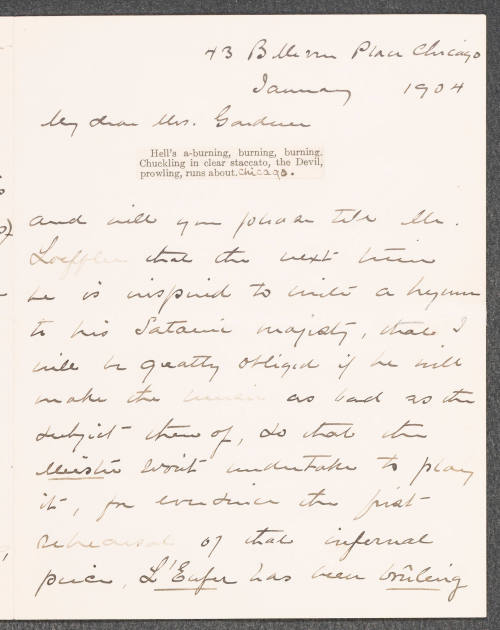 43 Bellevue Place Chicago
January 1904
My dear Mrs. Gardner
Hell's a-burning, burning, burning.
Chuckling in clear staccato, the Devil,
prowling, runs about. Chicago.
and will you please tell Mr.
Loeffler that the next time
he is inspired to write a hymn
to his Satanic majesty, that I
will be greatly obliged if he will
make the music as bad as the
subject thereof, so that the
Meister won't undertake to play
it, for ever since the first
rehearsal of that infernal
piece, L'Enfer has been brûleing